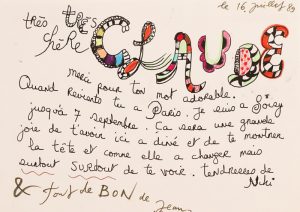 le 16 juillet 89
très très
chère
CLAUDE
merci pour ton mot adorable.
Quand reviens tu a Paris. Je suis a Soisy
jusqu'à 7 septembre. Ca sera une grande
joie de t'avoir ici a diné et de te montrer
la tête et comme elle a changer mais
surtout SURTOUT de te voir. tendresses de
Niki
& tout de BON de Jean